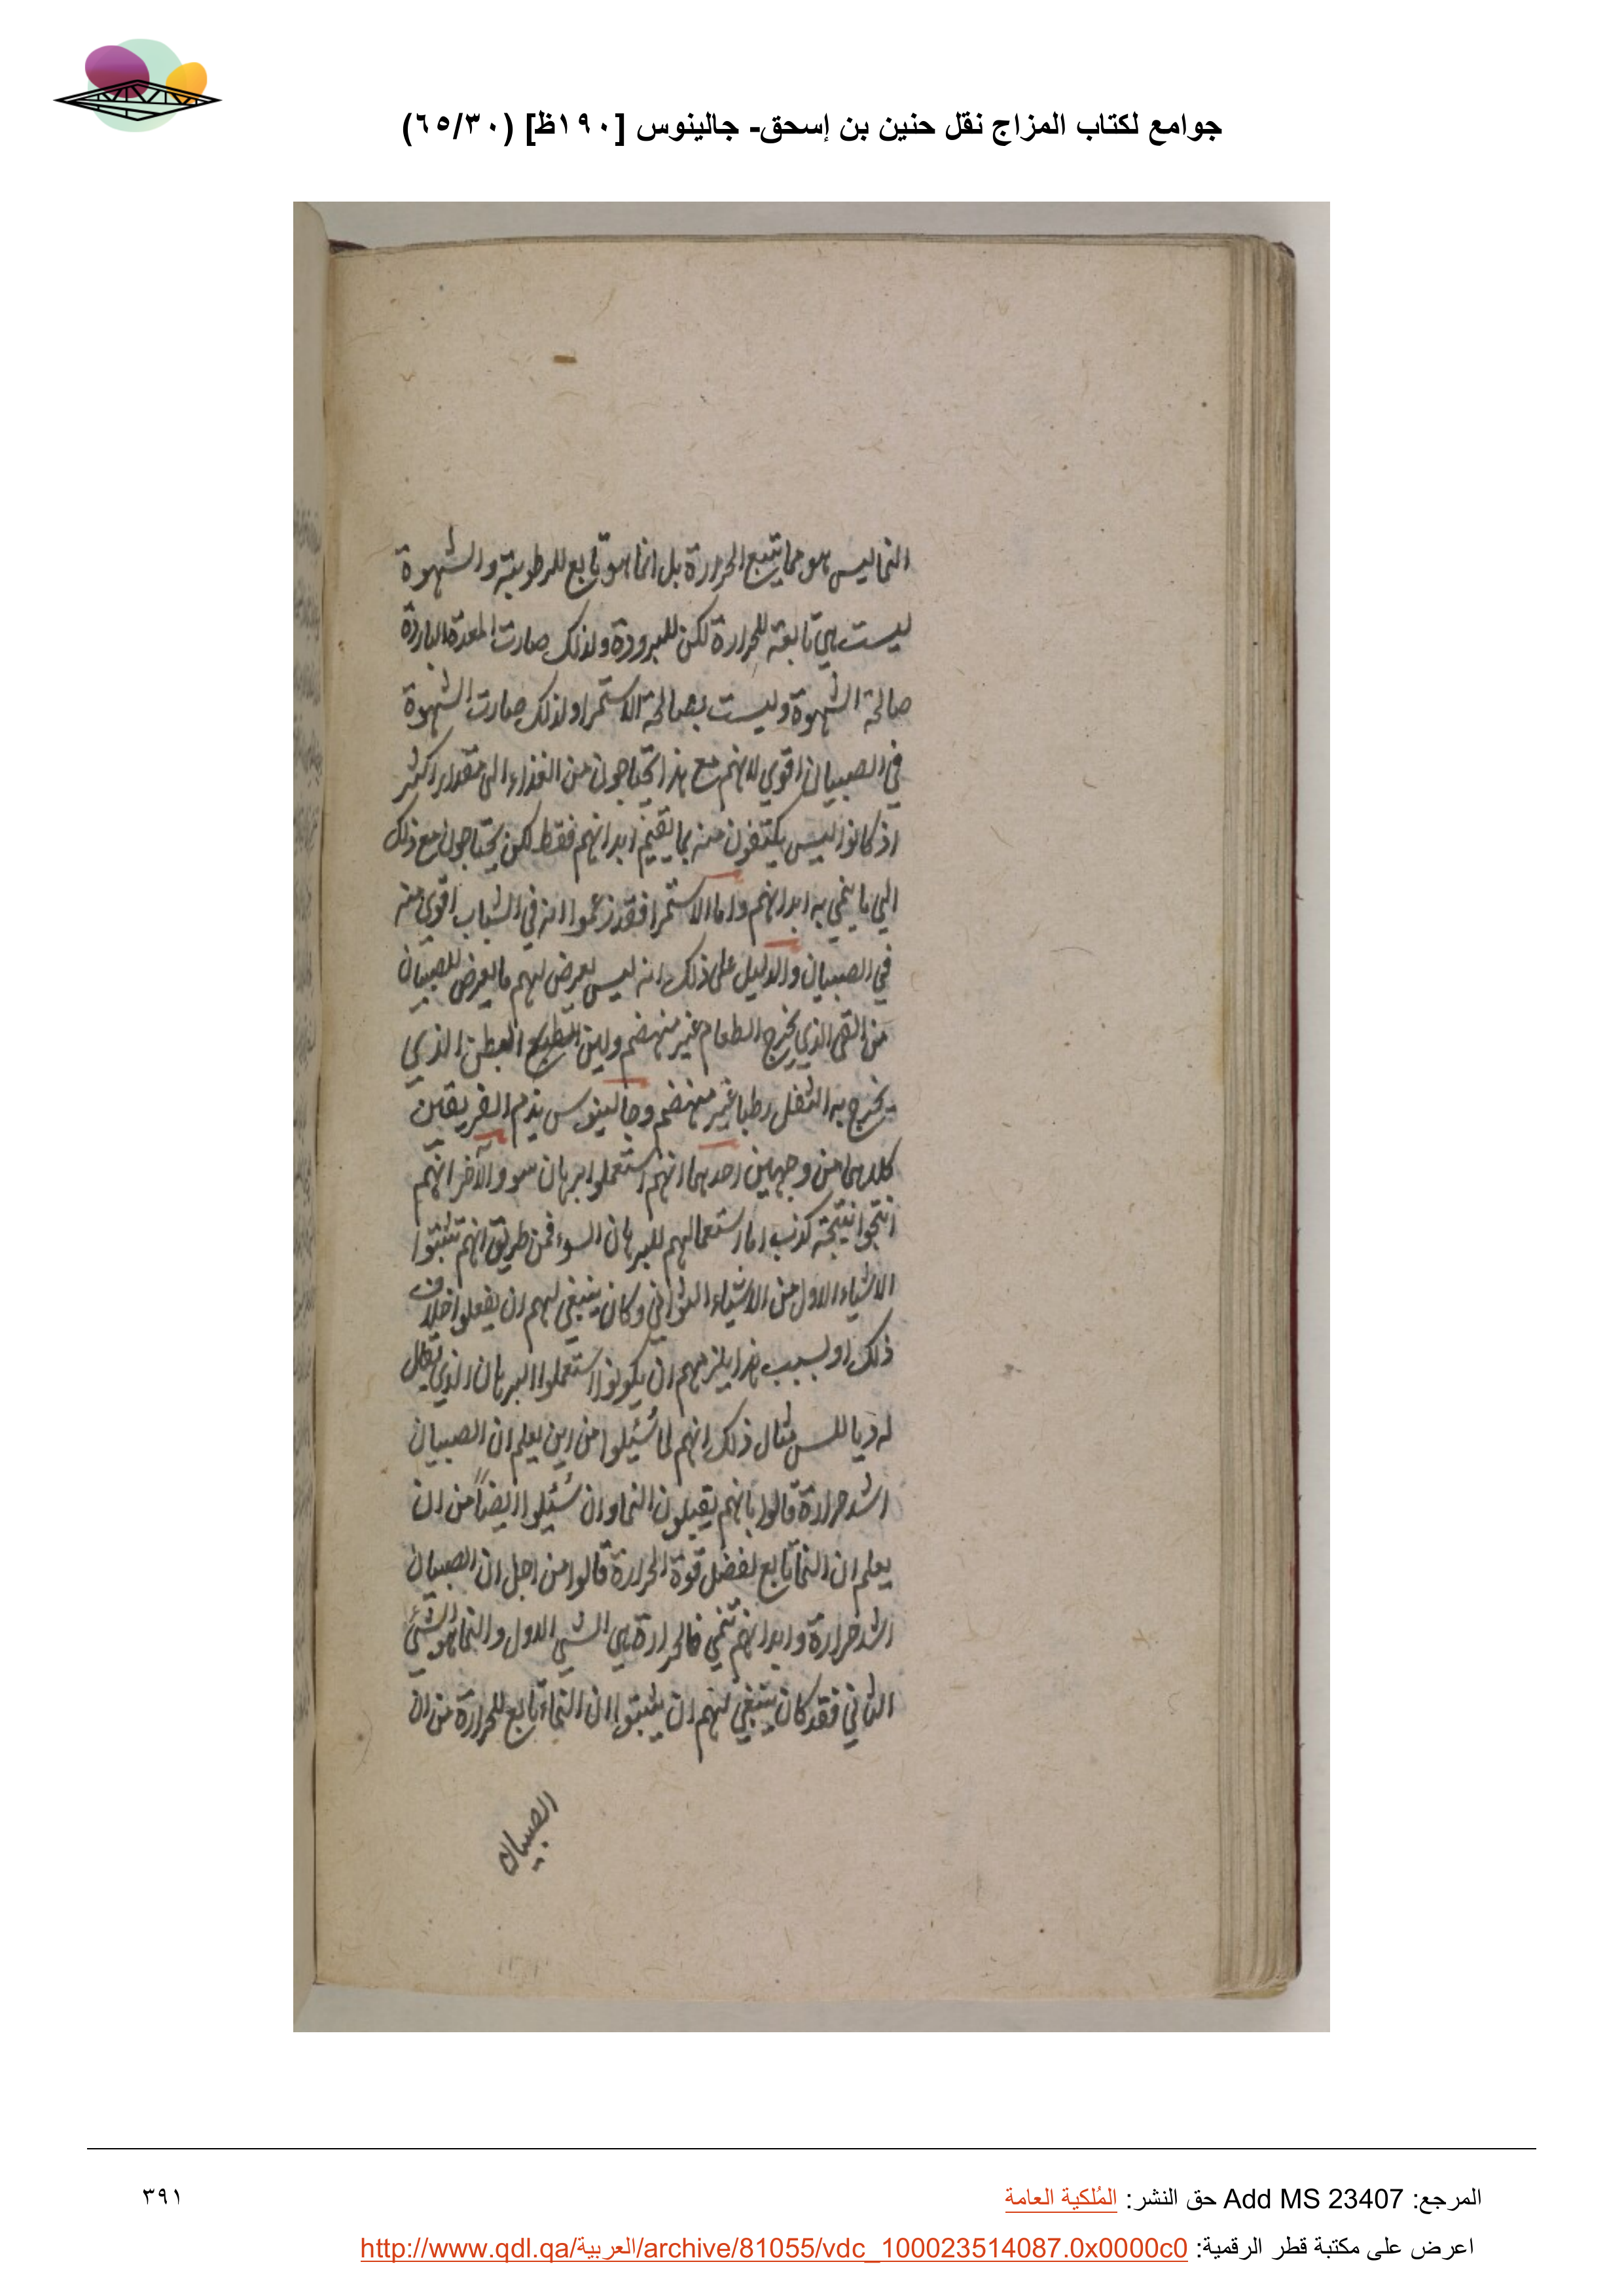 جوامع لكتاب المزاج نقل حنين بن إسحق- جالينوس [١٩٠ظ] (٦٥/٣٠)
النما ليس هو مما يتبع الحرارة بل انما هو تابع للرطوبة والشهوة
ليست هي تابعة للحرارة لكن للبرودة ولذلك صارت المعدة الباردة
صالحة الشهوة وليست بصالحة الاستمرا ولذلك صارت الشهوة
في الصبيان اقوي لانهم مع هذا يحتاجون من الغذاء الى مقدار اكثر
اذ كانوا ليس يكتفون منه بما يقيم ابدانهم فقط لكن يحتاجون مع ذلك
الي ما ينمي به ابدانهم واما الاستمرا فقد زعموا انه في الشباب اقوي منه
في الصبيان والدليل على ذلك انه ليس يعرض لهم ما يعرض للصبيان
من القي الذي يخرج الطعام غير منهضم ولين البطن الذي
يخرج به الثفل رطبا غير منهضم وجالينوس يذم الفريقين
كلاهما من وجهين احدهما انهم استعملوا برهان سو والآخر انهم
انتجوا نتيجة كذب اما استعمالهم للبرهان السوء فمن طريق انهم تثبتوا
الاشياء الاول من الاشياء الثواني وكان ينبغي لهم ان يفعلوا خلاف
ذلك او بسبب هذا يلزمهم ان يكونوا استعملوا البرهان الذي يقال
له ديا للس مثال ذلك انهم لما سُئيلوا من اين يعلم ان الصبيان
اشد حرارة قالوا بانهم يقبلون النما وان سُئيلوا ايضاً من ان
يعلم ان النما تابع لفضل قوة الحرارة قالوا من اجل ان الصبيان
اشد حرارة وابدانهم تنمي فالحرارة هي الشي الاول والنما هو الشئ
الثاني فقد كان ينبغي لهم ان يثبتوا ان النماء تابع للحرارة من ان
الصبيان
المرجع: Add MS 23407 حق النشر: المُلكية العامة
٣٩١
اعرض على مكتبة قطر الرقمية: http://www.qdl.qa/العربية/archive/81055/vdc_100023514087.0x0000c0